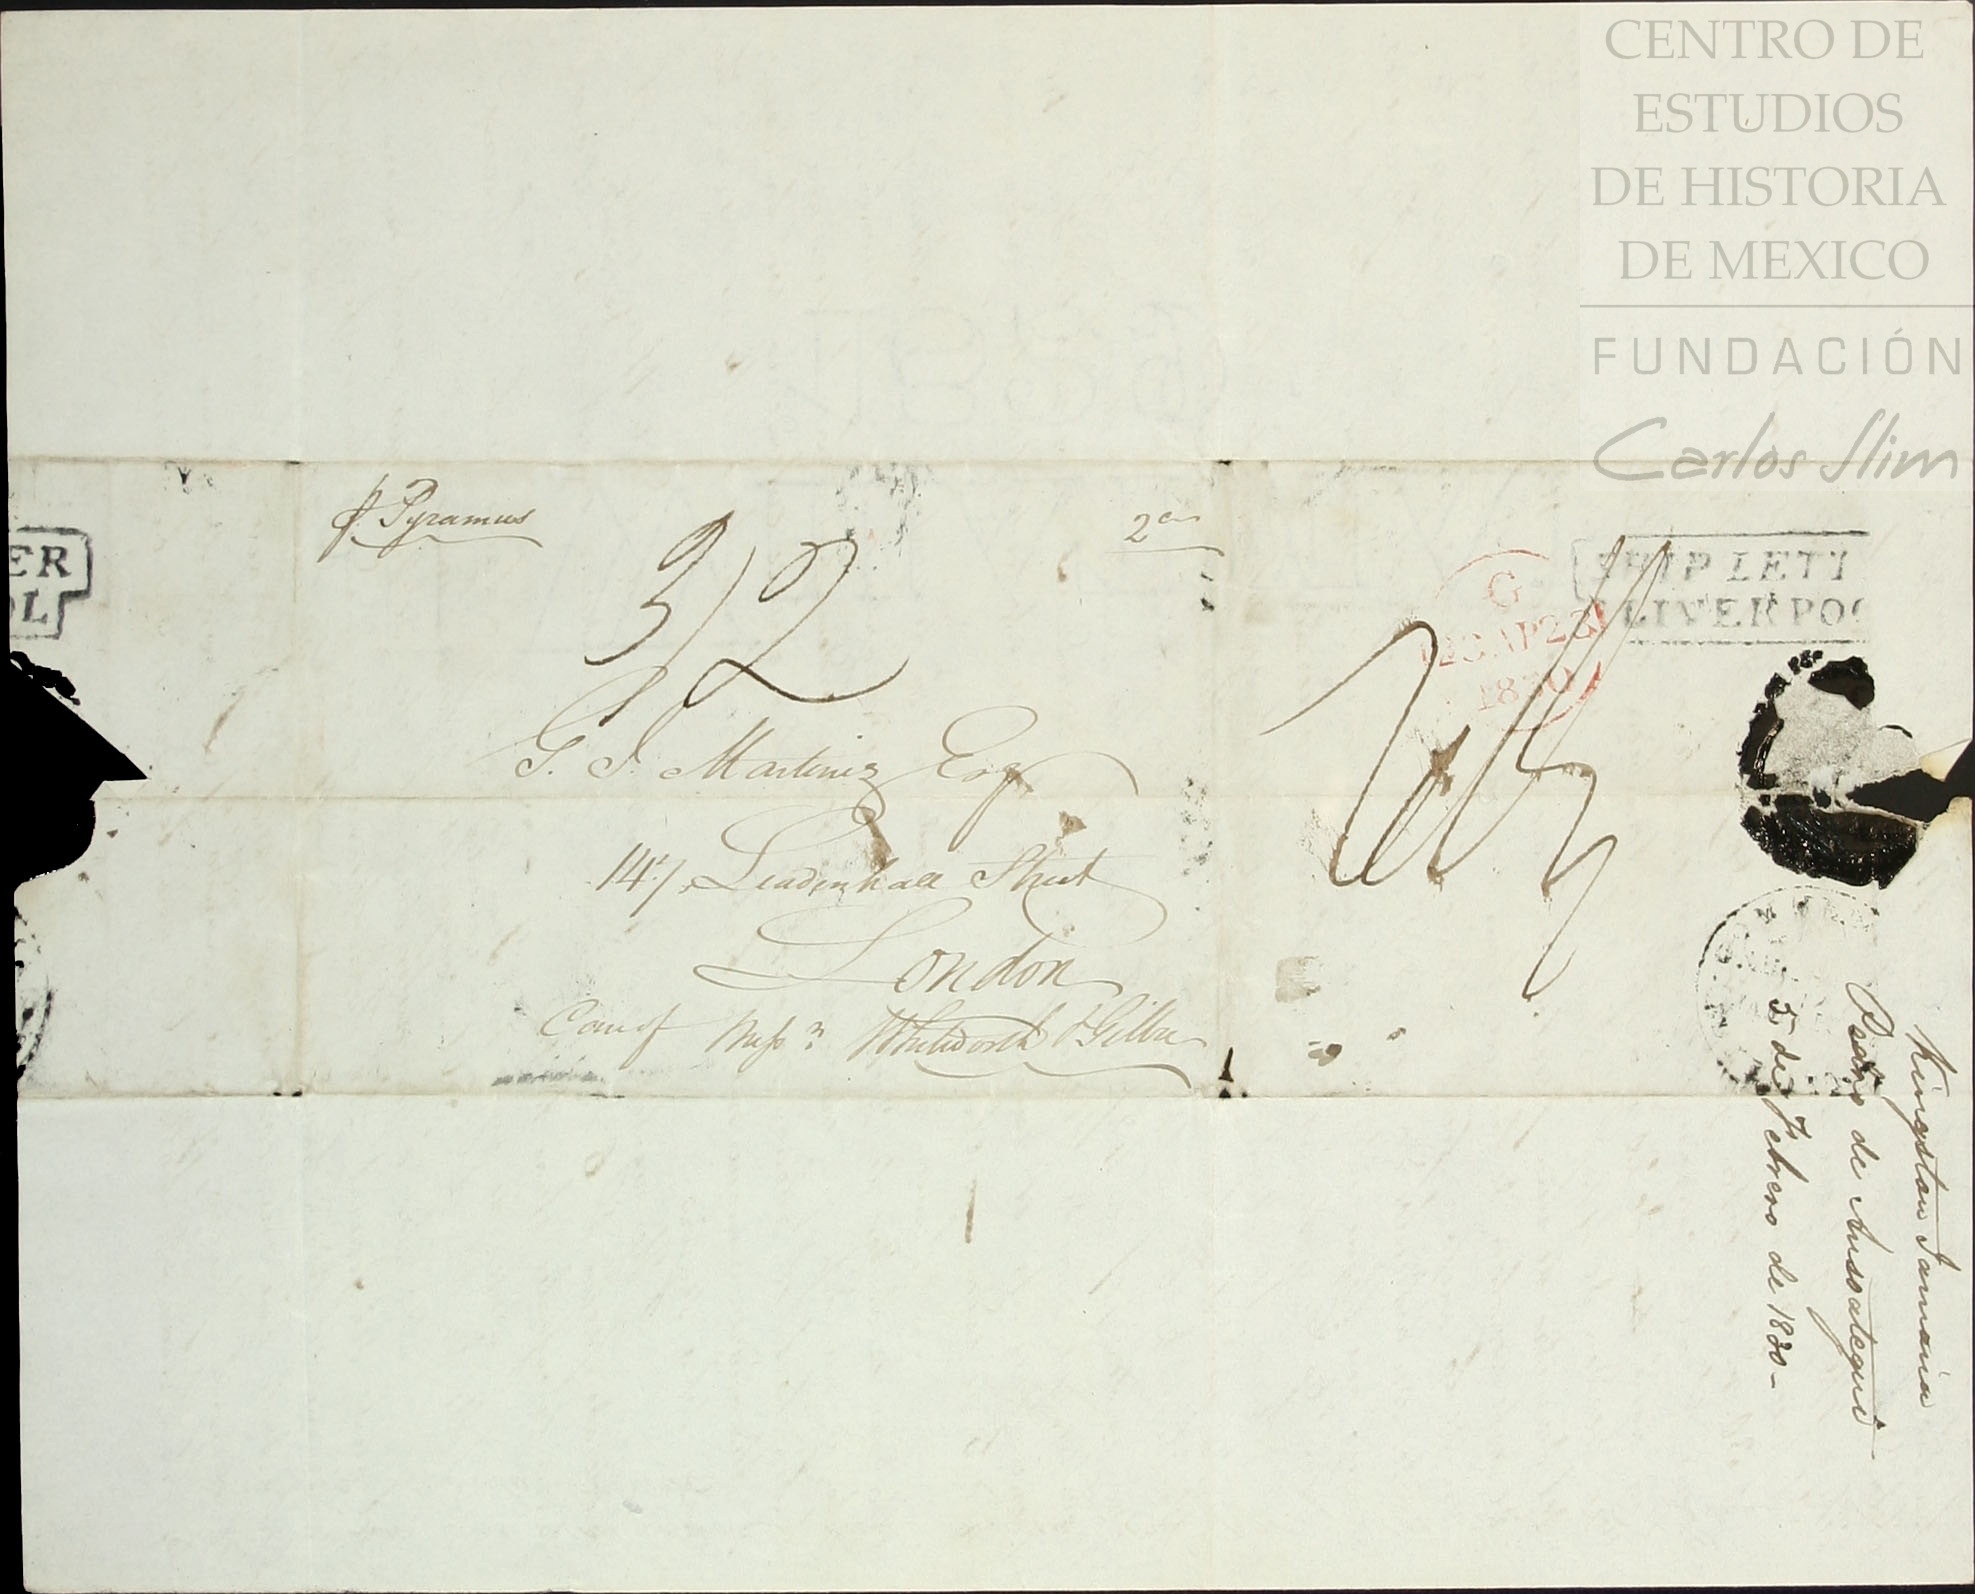 CENTRO DE
ESTUDIOS
DE HISTORIA
DE MEXICO
FUNDACIÓN
Carlos Slim
p. Pyramus
2a
3/2
G. J. Martinez Esqr
147, Leadenhall Street
London
Care of Messrs Whitworth &
ER
OL
SHIP LETT
LIVERPOO
G
23 AP 23
1830
Kingston Jamaica
Pedro de Ansoategui
5 de Febrero de 1830-